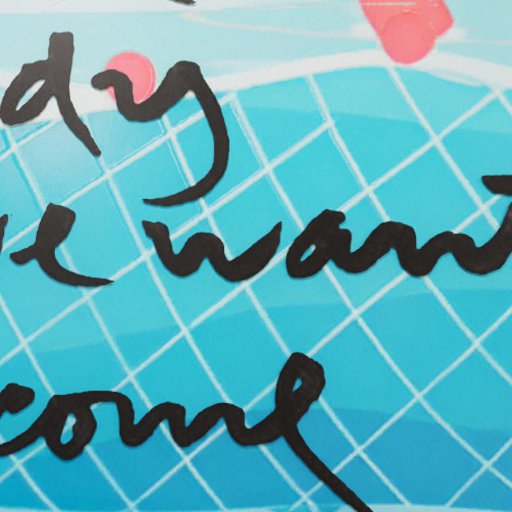 dy
want
come